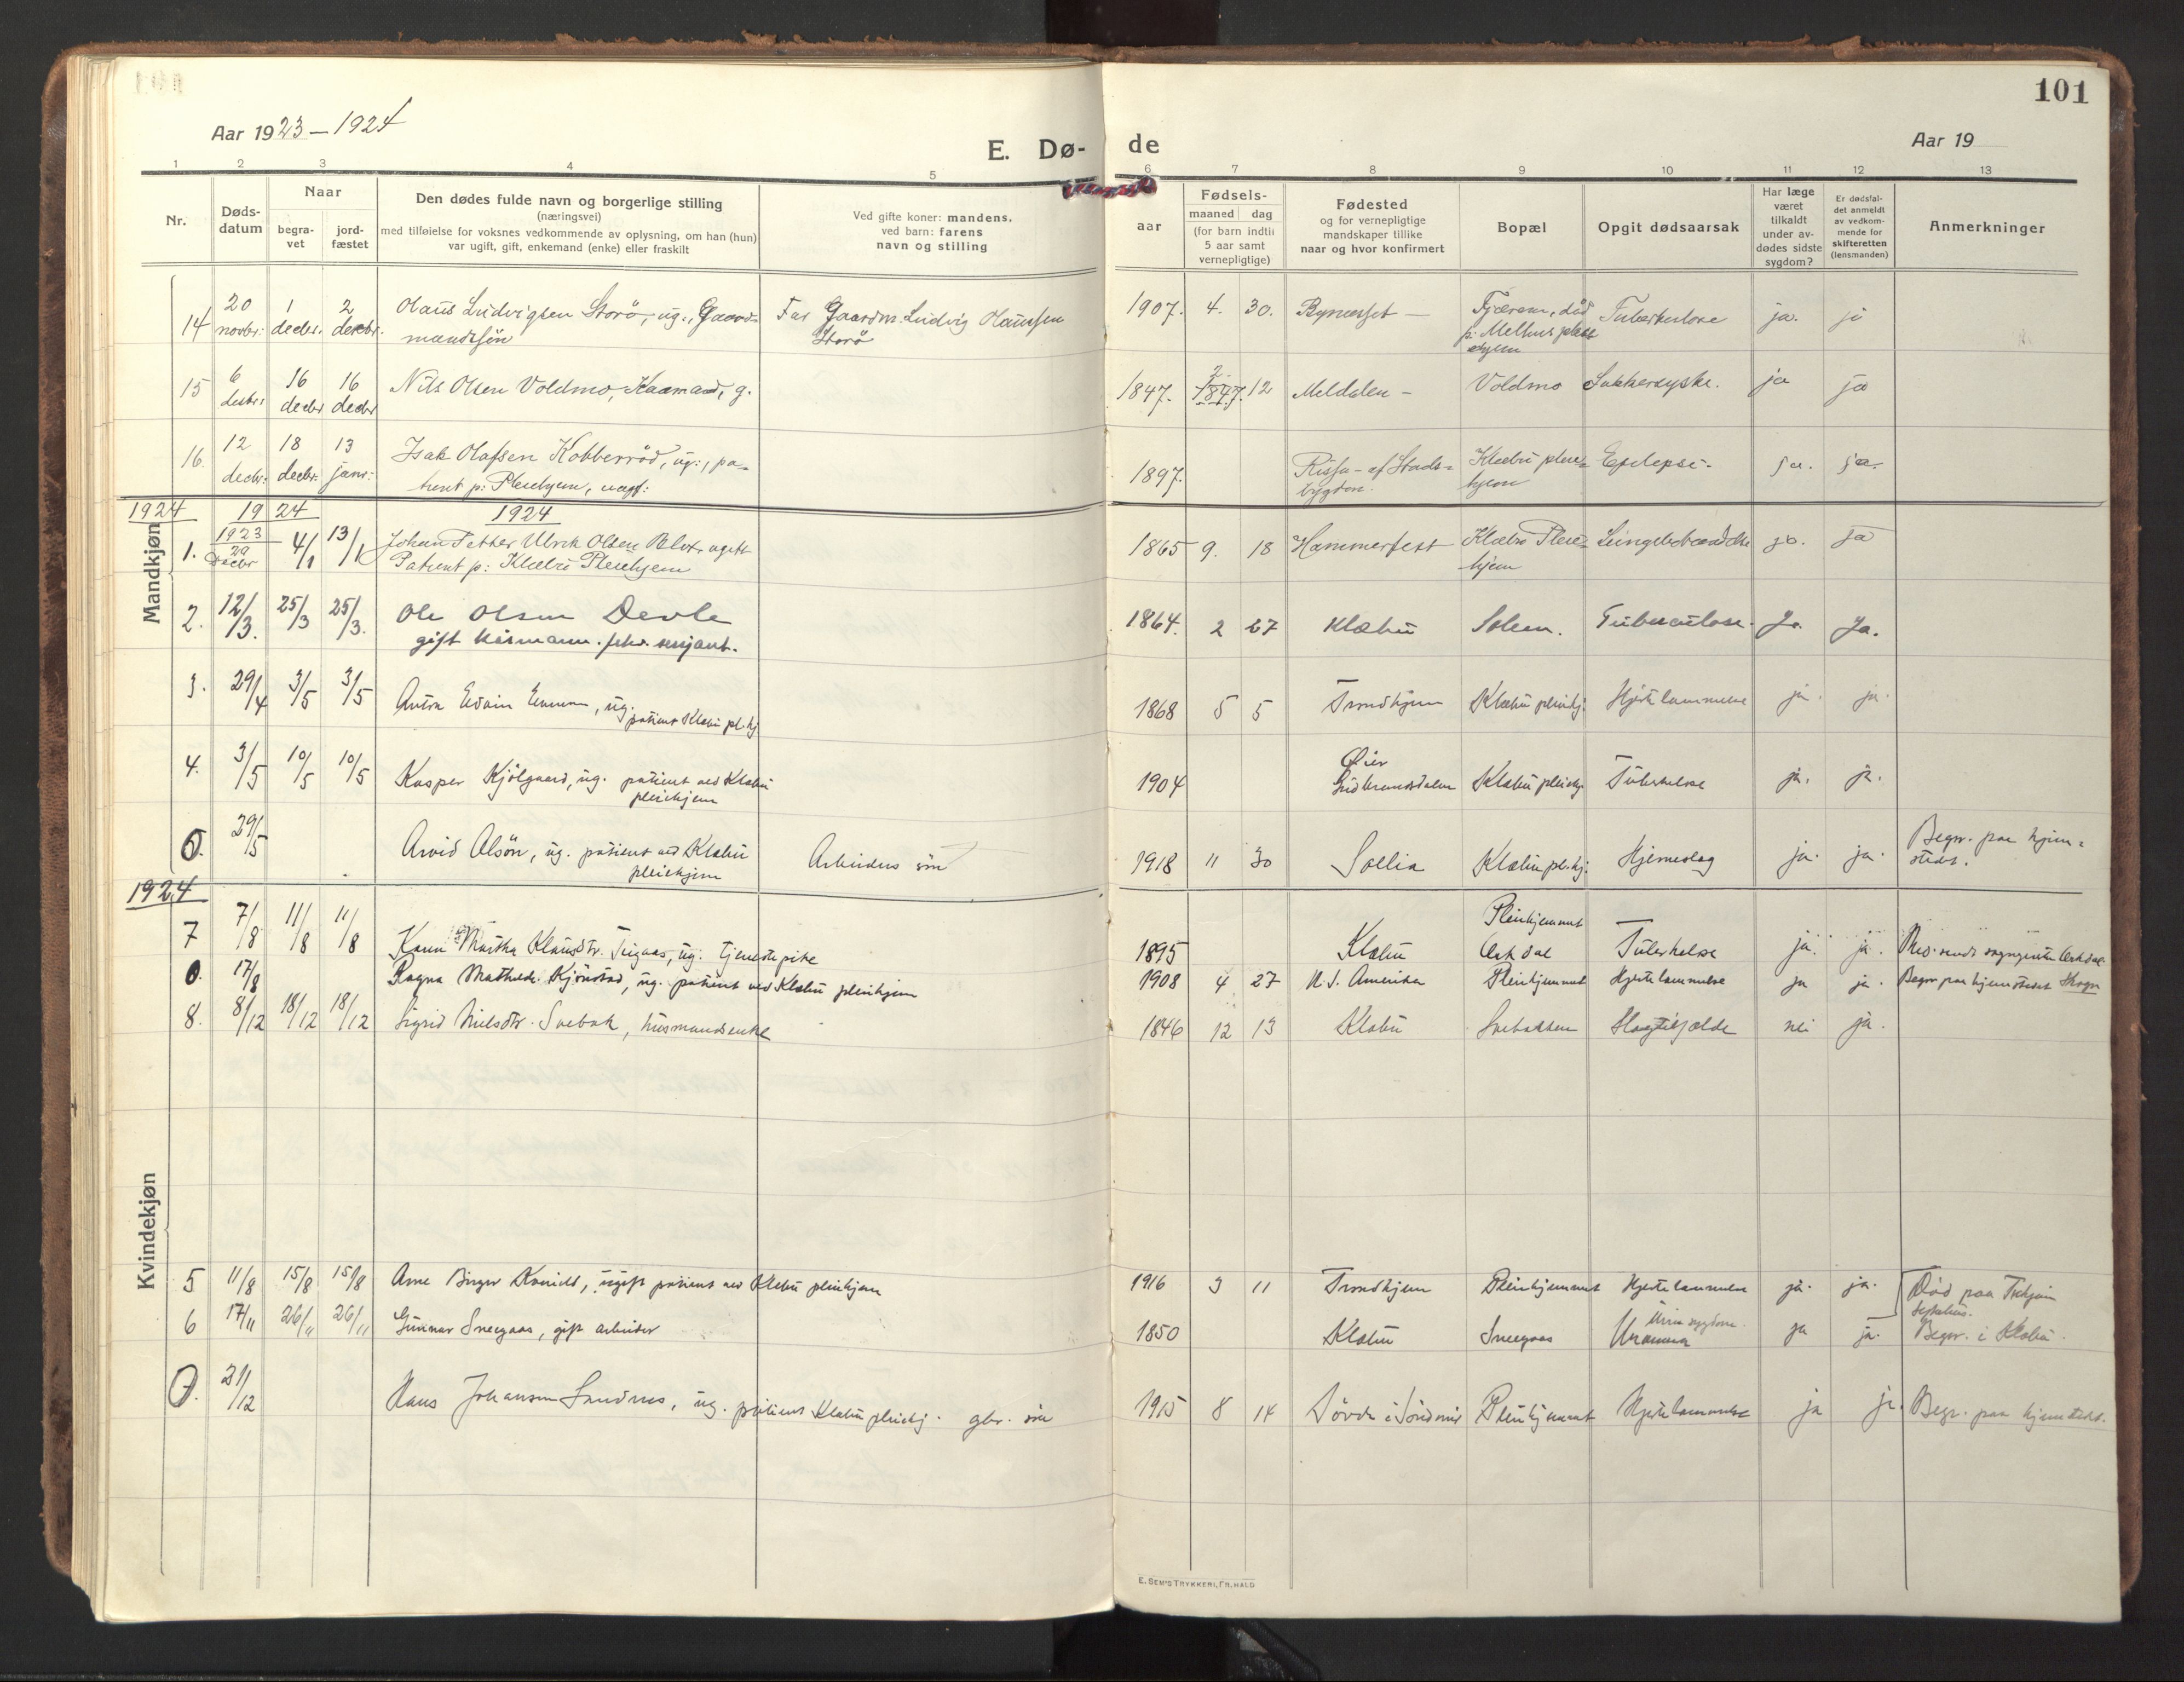 101
Aar 1923-1924
E. Dø-
de
Aar 19
1 2 3 4 5 6 7 8 9 10 11 12 13
Nr.
Døds-
datum
Naar
begra-
vet
jord-
fæstet
Den dødes fulde navn og borgerlige stilling
(næringsvei)
med tilføielse for voksnes vedkommende av oplysning, om han (hun)
var ugift, gift, enkemand (enke) eller fraskilt
Ved gifte koner: mandens,
ved barn: farens
navn og stilling
aar
Fødsels-
maaned dag
(for barn indtil
5 aar samt
vernepligtige)
Fødested
og for vernepligtige
mandskaper tillike
naar og hvor konfirmert
Bopæl
Opgit dødsaarsak
Har læge
været
tilkaldt
under av-
dødes sidste
sygdom?
Er dødsfal-
det anmeldt
av vedkom-
mende for
skifteretten
(lensmanden)
Anmerkninger
Mandkjøn
14 20 novbr: 1 decbr. 2 decbr. Olaus Ludvigsen Storö, ug., Gaard-
mandssön
Far Gaardm. Ludvig Olaussen
Storö
1907. 4. 30. Bynesset – Tuberkulose ja. ja
15 6 decbr: 16 decbr 16 decbr Nils Olsen Voldmo, Kaarmand, g.
1847. 2. 1847. 12 Meldalen – Voldmo Sukkersyke. ja ja
16. 12 decbr. 18 decbr. 13 janr: Isak Olafsen Kobberröd, ug:, pa-
tient p: Pleiehjem,
1897. Rissa – af Stads-
bygden. Klæbu pleie-
hjem Epilepsi. ja. ja.
1924 1924 1924
1. 1923 29 Decbr 4/1 13/1 Johan Petter Ulrik Olsen ugift
Patient p: Klæbu Pleiehjem
1865 9. 18 Hammerfest Klæbu Pleie-
hjem Lungebetændelse ja. ja
2. 12/3. 25/3 25/3. Ole Olsen Devle
gift sersjant.
1864. 2 27 Klæbu Tuberculose. Ja Ja.
3. 29/4 3/5 3/5 Anton Edvin ug.
patient Klæbu pl.hj
1868 5 5 Trondhjem Klæbu pleiehj. Hjertelammelse ja. ja.
4. 3/5 10/5 10/5 Kasper Kjölgaard, ug. patient ved Klæbu
pleiehjem
1904 Øier
Gudbrandsdalen Klæbu pleiehj. Tuberkelose ja. ja.
0. 29/5 Arvid Olsön, ug. patient ved Klæbu
pleiehjem
Arbeiders sön
1918 11 30 Sollia Klæbu pl.hj. Hjerneslag ja. ja. Begr. paa hjem-
stedet.
1924
Kvindekjøn
7 7/8 11/8 11/8 Martha Klausdtr. ug. tjenestepike
1895 Klæbu Pleiehjemmet
Tuberkelose ja. ja.
0. 17/8 Ragna Mathilde Kjönstad, ug. patient ved Klæbu pleiehjem
1908 4 27 N. S. Amerika Pleiehjemmet Hjertelammelse ja ja. Begr. paa hjemstedet Skogn
8. 8/12 18/12 18/12 Sigrid Nielsdtr. Svebak, husmandsenke
1846 12 13 Klæbu Svebakken Slagtilfælde nei ja.
5 11/8 15/8 15/8 Arne Birger ugift patient ved Klæbu pleiehjem
1916 3 11 Trondhjem Pleiehjemmet Hjertelammelse ja. ja.
6 17/11 26/11 26/11 Gunnar Sneegaas, gift arbeider
1850 Klæbu Sneegaas ja ja. Död paa Tr.hjem
sykehus.
Begr. i Klæbu.
0. 21/12 Hans Johansen Sandnes, ug. patient Klæbu pleiehj. gbr. sön
1915 8 14 Pleiehjemmet Hjertelammelse ja ja. Begr. paa hjemstedet.
E. SEM'S TRYKKERI, FR.HALD